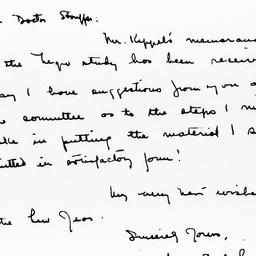 Doctor Stouffer:
Mr. Keppel's memorandum
the Negro study has been receiv
ay I have suggestions from you a
e committee as to the steps I m
ke in putting the material I s
itted in satisfactory form?
My very best wishes
the New Year.
Sincerely Yours,